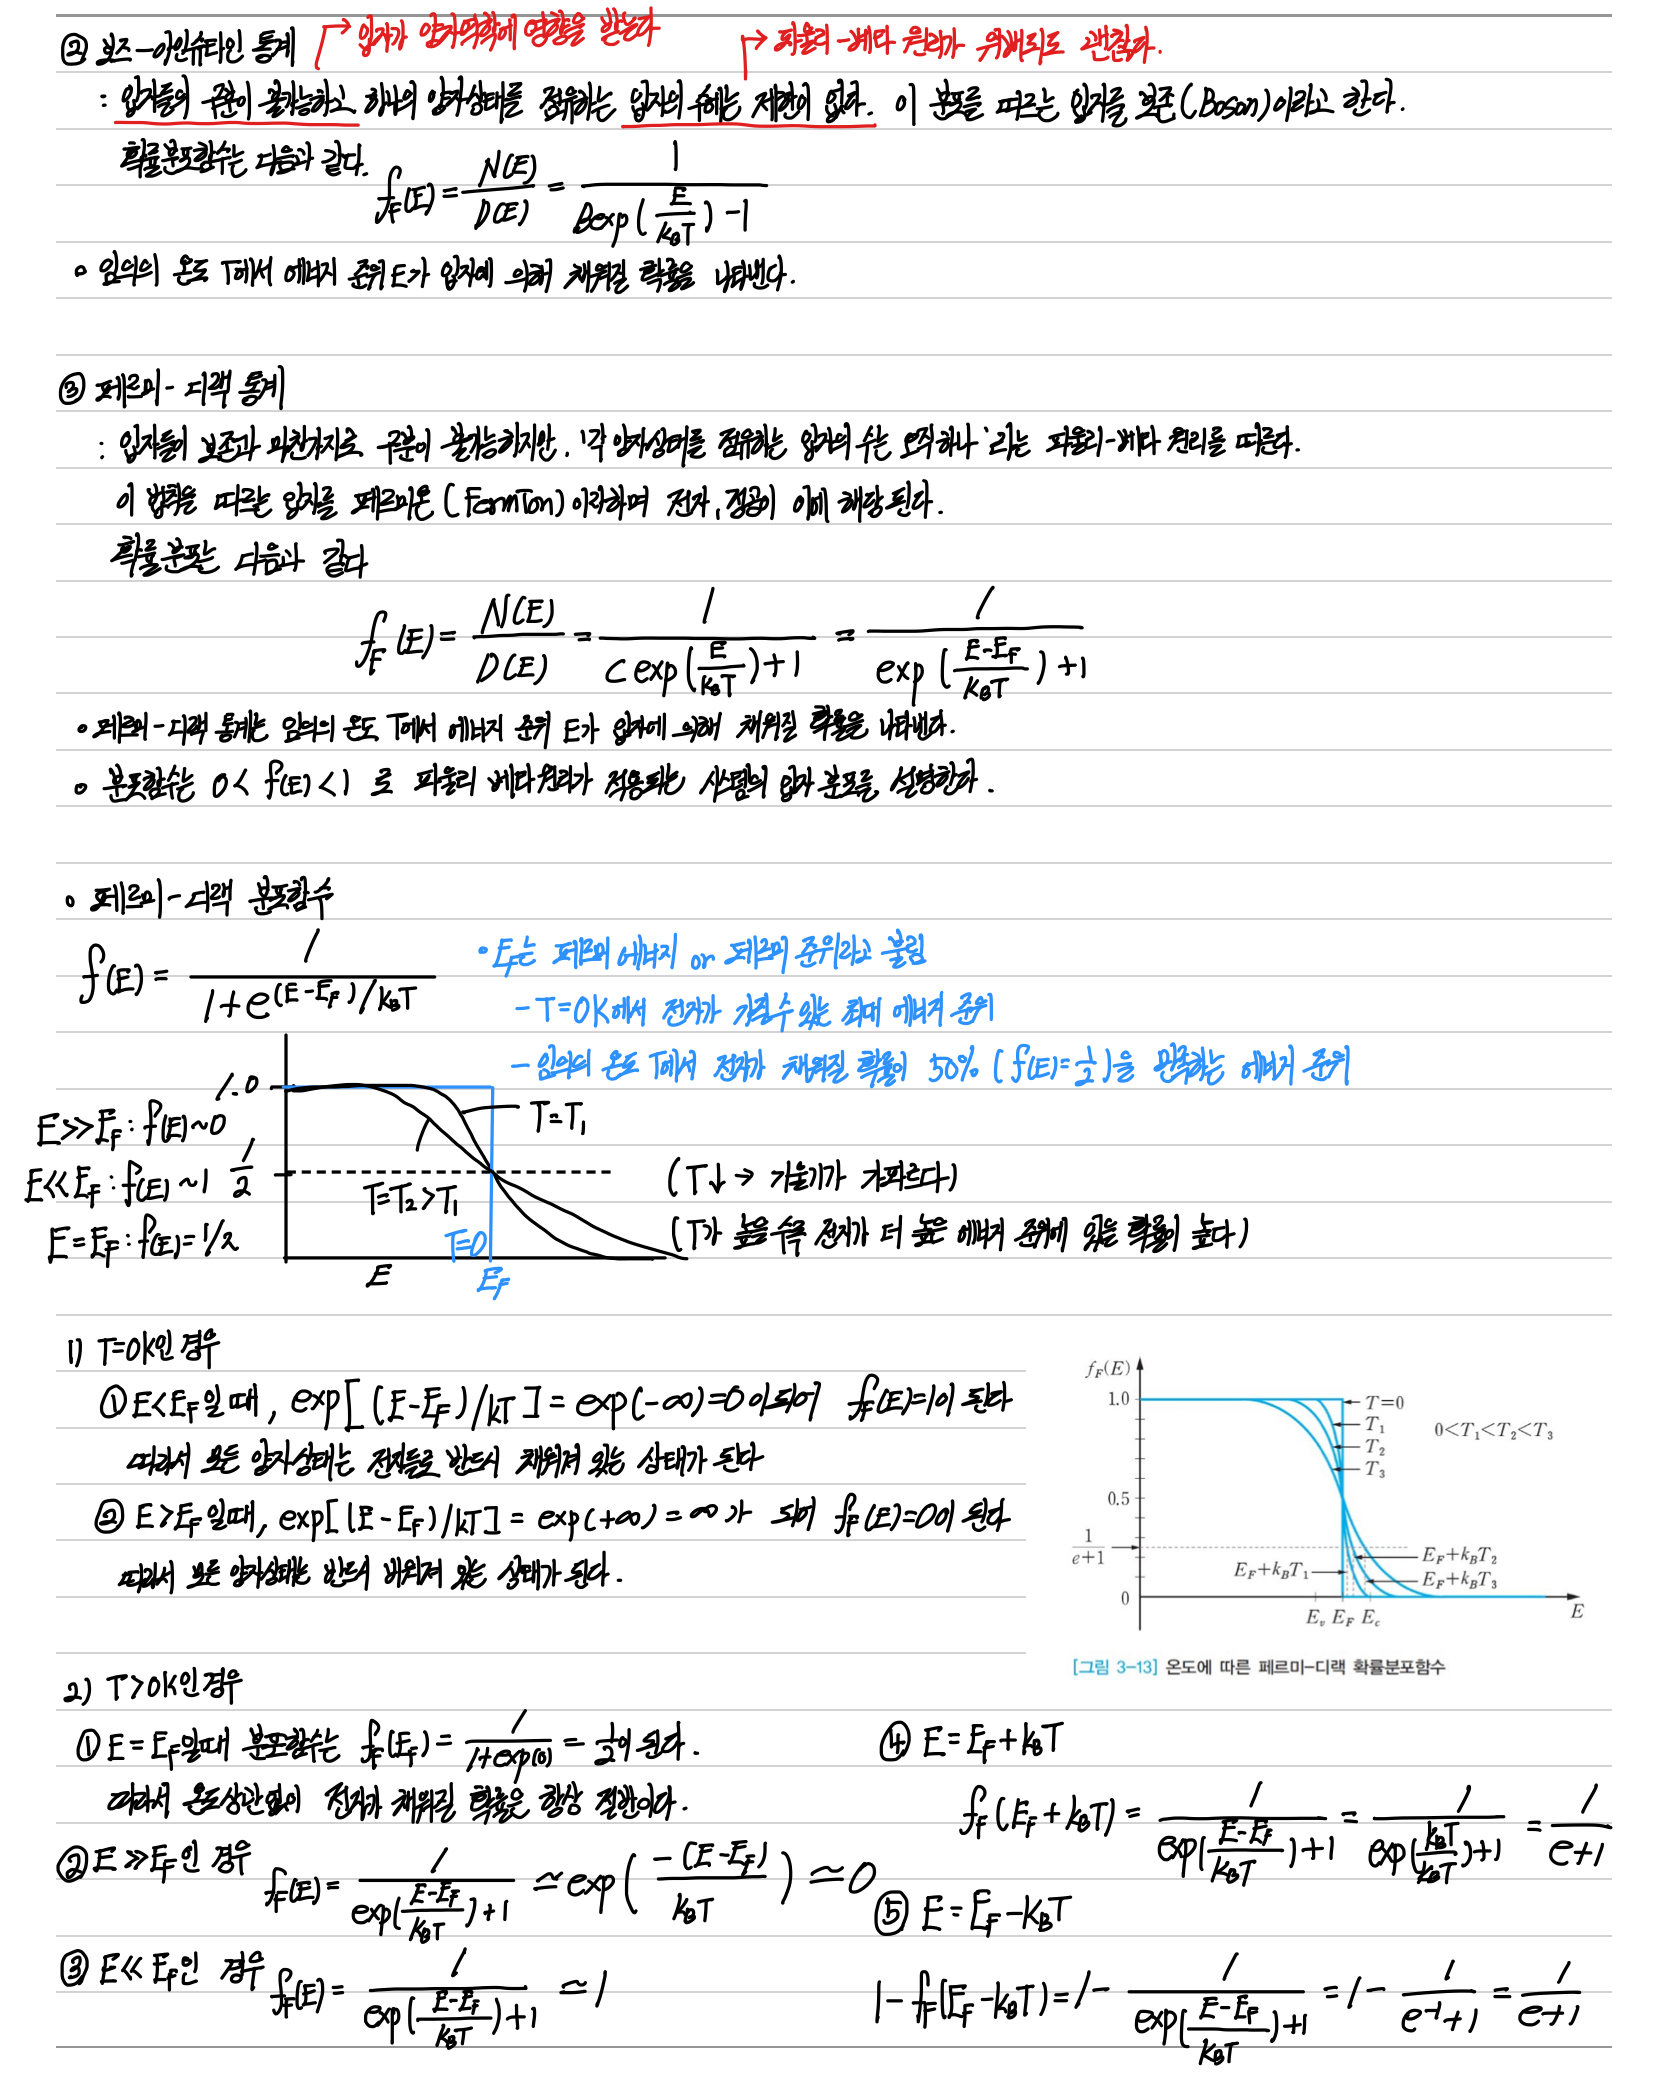 ② 보즈-아인슈타인 통계
→ 입자가 양자역학에 영향을 받는다
→ 파울리-베타 원리가 위배되도 괜찮다.
: 입자들의 구분이 불가능하고 하나의 양자상태를 점유하는 입자의 수에는 제한이 없다. 이 분포를 따르는 입자를 보존(Boson)이라고 한다.
확률분포함수는 다음과 같다.
f_F(E) = N(E)/D(E) = 1/(B exp(E/k_BT) - 1)
∘ 임의의 온도 T에서 에너지 준위 E가 입자에 의해 채워질 확률을 나타낸다.
③ 페르미-디랙 통계
: 입자들이 보존과 마찬가지로 구분이 불가능하지만, '각 양자상태를 점유하는 입자의 수는 오직하나'라는 파울리-베타 원리를 따른다.
이 법칙을 따르는 입자를 페르미온(Fermion)이라하며 전자, 정공이 이에 해당된다.
확률분포는 다음과 같다
f_F(E) = N(E)/D(E) = 1/(C exp(E/k_BT) + 1) = 1/(exp((E-E_F)/k_BT) + 1)
∘ 페르미-디랙 통계는 임의의 온도 T에서 에너지 준위 E가 입자에 의해 채워질 확률을 나타낸다.
∘ 분포함수는 0 < f(E) < 1 로 파울리 베타원리가 적용되는 시스템의 입자 분포를 설명한다.
∘ 페르미-디랙 분포함수
f(E) = 1/(1 + e^(E-E_F)/k_BT)
∘ E_F는 페르미 에너지 or 페르미 준위라고 불림
- T=0K에서 전자가 가질수 있는 최대 에너지 준위
- 임의의 온도 T에서 전자가 채워질 확률이 50% (f(E)=1/2)을 만족하는 에너지 준위
1.0
E≫E_F : f(E)~0
T=T₁
E≪E_F : f(E)~1
1/2
T=T₂>T₁
(T↓ → 기울기가 가파르다)
E=E_F : f(E)=1/2
T=0
(T가 높을수록 전자가 더 높은 에너지 준위에 있을 확률이 높다)
E
E_F
1) T=0K인 경우
① E<E_F일 때, exp[(E-E_F)/kT] = exp(-∞)=0 이되어 f_F(E)=1이 된다
따라서 모든 양자상태는 전자들로 반드시 채워져 있는 상태가 된다
② E>E_F일때, exp[(E-E_F)/kT] = exp(+∞) = ∞가 되어 f_F(E)=0이 된다
따라서 모든 양자상태는 반드시 비워져 있는 상태가 된다.
f_F(E)
1.0
T=0
T₁
0<T₁<T₂<T₃
T₂
T₃
0.5
1/(e+1)
E_F+k_BT₂
E_F+k_BT₁
E_F+k_BT₃
0
E_v E_F E_c
E
[그림 3-13] 온도에 따른 페르미-디랙 확률분포함수
2) T>0K인 경우
① E=E_F일때 분포함수는 f_F(E_F) = 1/(1+exp(0)) = 1/2이 된다.
따라서 온도상관없이 전자가 채워질 확률은 항상 절반이다.
② E≫E_F인 경우 f_F(E) = 1/(exp((E-E_F)/k_BT)+1) ≃ exp(-(E-E_F)/k_BT) ≃ 0
③ E≪E_F인 경우 f_F(E) = 1/(exp((E-E_F)/k_BT)+1) ≃ 1
④ E=E_F+k_BT
f_F(E_F+k_BT) = 1/(exp((E-E_F)/k_BT)+1) = 1/(exp(k_BT/k_BT)+1) = 1/(e+1)
⑤ E=E_F-k_BT
1-f_F(E_F-k_BT) = 1 - 1/(exp((E-E_F)/k_BT)+1) = 1 - 1/(e⁻¹+1) = 1/(e+1)